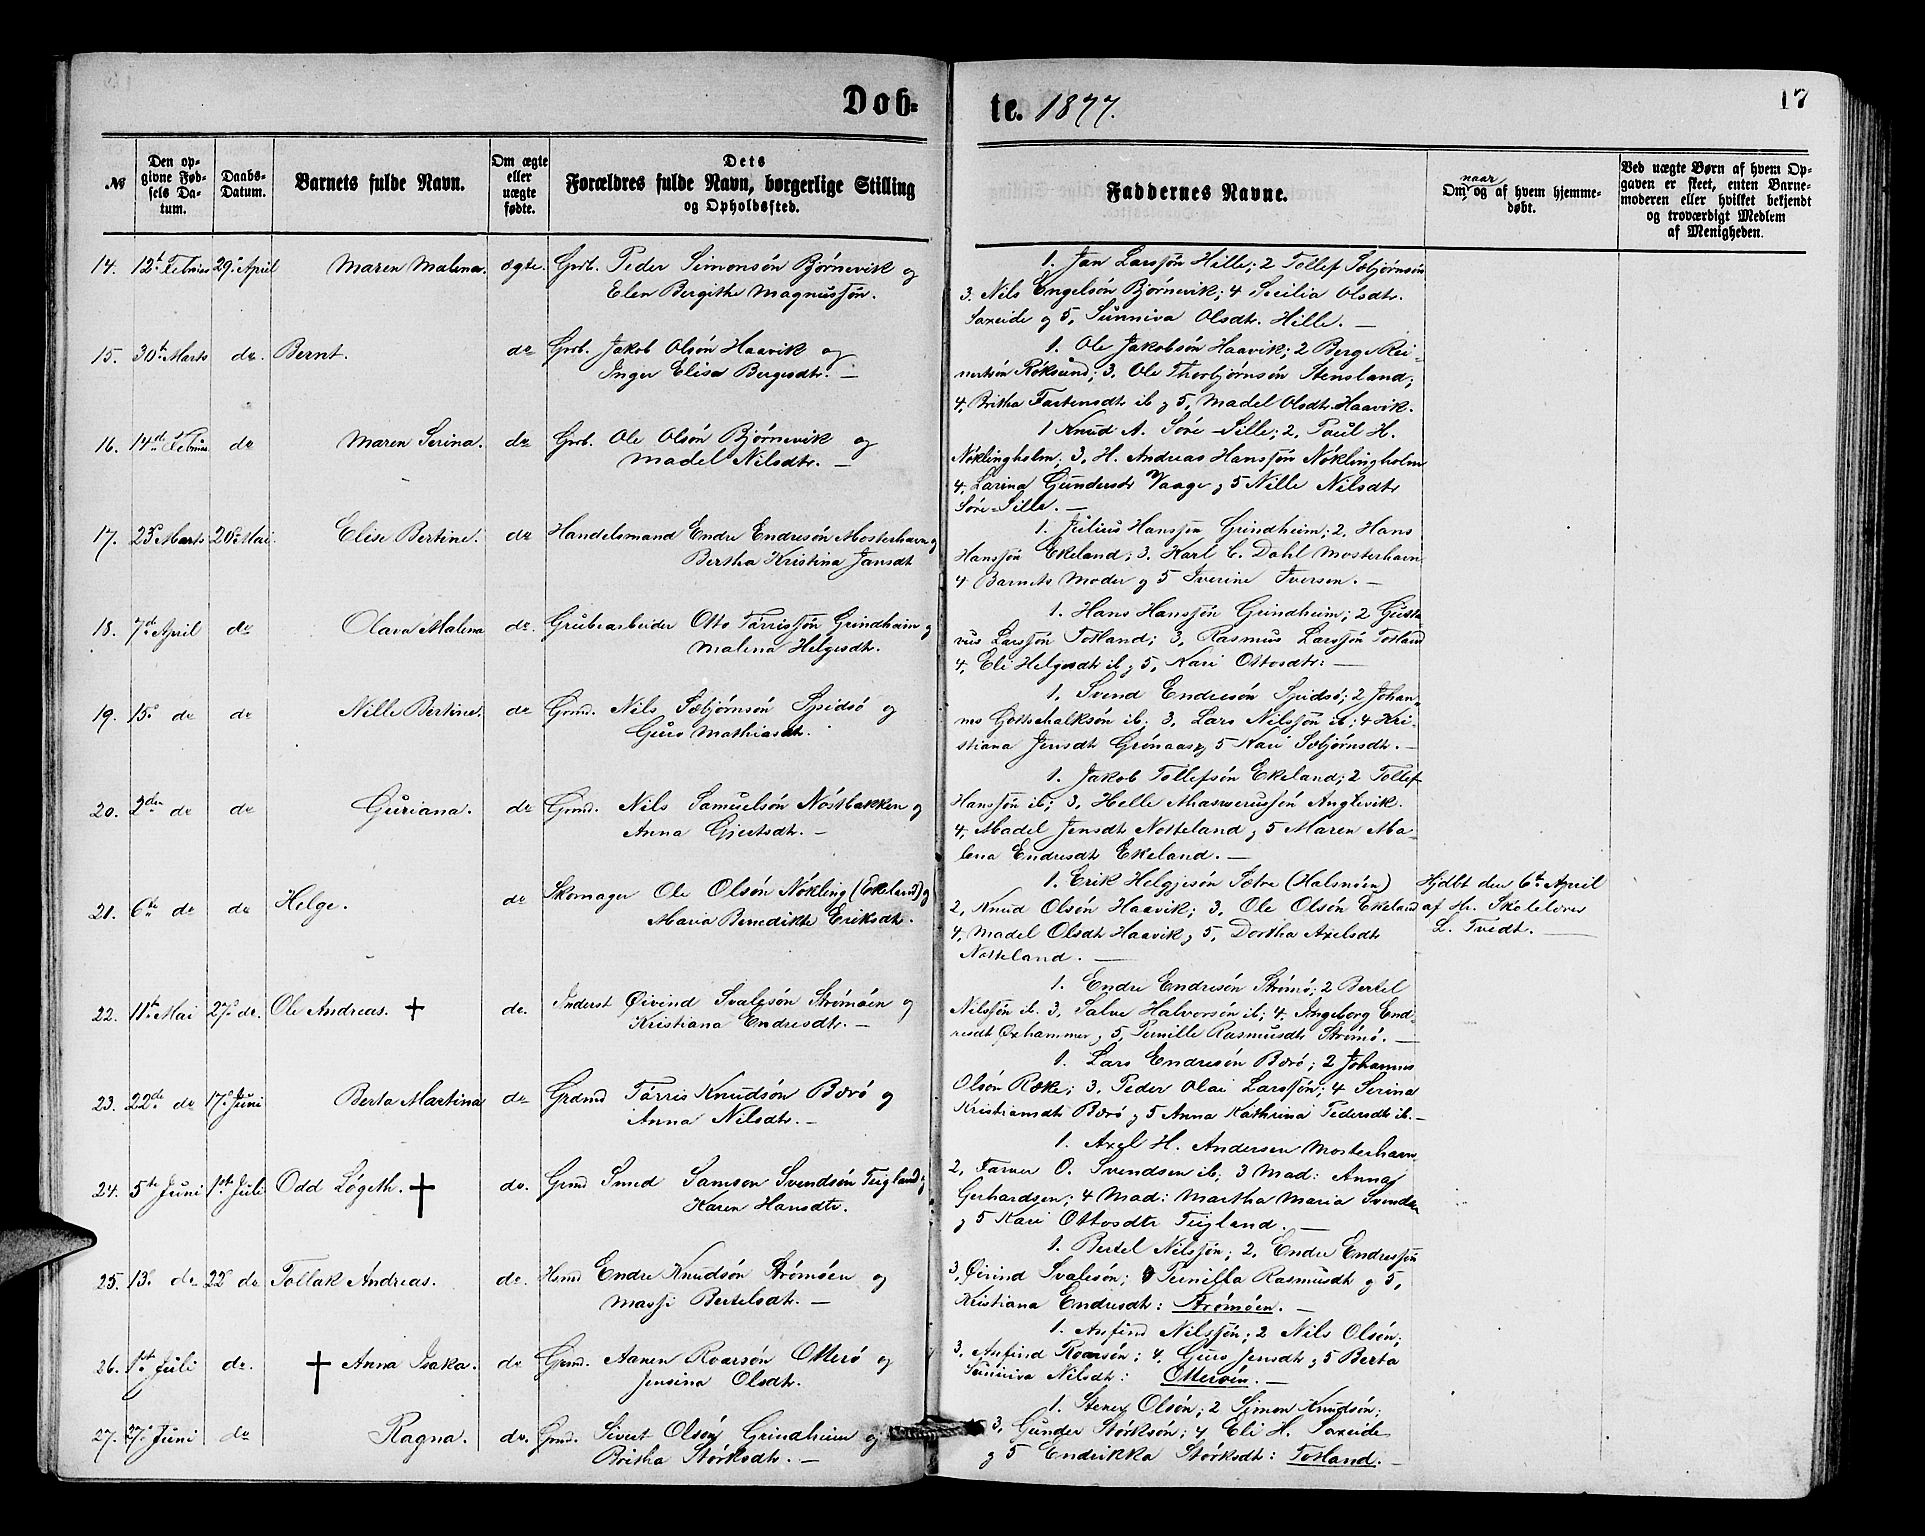 Dob-
te. 1877.
17
№
Den op-
givne Fød-
sels Da-
tum.
Daabs-
Datum.
Barnets fulde Navn.
Om ægte
eller
uægte
fødte.
Dets
Forældres fulde Navn, borgerlige Stilling
og Opholdssted.
Faddernes Navne.
naar
Om, og af hvem hjemme-
døbt.
Ved uægte Børn af hvem Op-
gaven er skeet, enten Barne-
moderen eller hvilket bekjendt
og troværdigt Medlem
af Menigheden.
14. 12t. Februar 29. April Maren Malena. ægte. Grb. Peder Simonsön Björnevik og
Elen Bergithe Magnussön.
1. Jan Larssön Hille; 2 Tollef Sæbjörnsön
3. Nils Engelsön Björnevik; 4 Secilia Olsdtr.
Saxeide og 5, Sunniva Olsdtr. Hille. —
15. 30t. Marts do. Bernt. do Grb. Jakob Olsön Haavik og
Inger Elisa Bergesdtr. —
1. Ole Jakobsön Haavik; 2 Berge Rei-
nertsön Röksund; 3. Ole Thorbjörnsön Stensland;
4, Britha Tostensdtr ib & 5, Madel Olsdtr. Haavik.
16. 14de. Februar do Maren Serina. do Grb. Ole Olsön Björnevik og
Madel Nilsdtr. —
1 Knud A. Söre-Sille; 2, Paul H.
Nöklingholm; 3. H. Andreas Hanssön Nöklingholm
4, Larina Gundersdtr Vaage & 5 Nille Nilsdtr
Söre-Sille. —
17. 23d Marts 20d Mai. Elise Bertine. do Handelsmand Endre Endresön Mosterhavn og
Bertha Kristina Jansdt
1. Julius Hanssön Grindheim; 2, Hans
Hanssön Ekeland; 3. Karl C. Dahl Mosterhavn
4 Barnets Moder & 5 Iverine Iversen. —
18. 7d. April do Olava Malena do. Grubearbeider Otto Törrissön Grindheim &
Malena Helgesdtr.
1. Hans Hanssön Grindheim; 2 Gusta-
vus Larssön Totland; 3, Rasmus Larssön Totland
4, Eli Helgesdtr ib & 5, Kari Ottosdtr: —
19. 15d. do do Nille Bertine. do Grmd. Nils Sæbjörnsön Spidsö og
Guro Mathiasdtr.
1. Svend Endresön Spidsö; 2 Johan-
nes Gotschalksön ib; 3. Lars Nilssön ib; 4 Kri-
stiana Jensdtr Grönaas & 5 Kari Sæbjörnsdtr. —
20. 2den do do Guriana. do Grmd. Nils Samuelsön Nöstbakken og
Anna Gjertsdtr. —
1. Jakob Tollefsön Ekeland; 2 Tollef
Hanssön ib; 3, Helle Ahasverussön Anglevik.
4, Madel Jensdtr Notteland & 5 Maren Ma-
lena Endresdtr Ekeland. —
21. 6te. do do Helge. do Skomager Ole Olsön Nökling (Ekeland) &
Maria Benedikte Eriksdtr.
1. Erik Helgjesön Tötre (Halsnöen)
2, Knud Olsön Haavik; 3, Ole Olsön Ekeland
4, Madel Olsdtr Haavik & 5, Dortha Axelsdtr
Notteland. —
Hjdbt den 6te April
af Hr. Skolelærer
L. Tvedt. —
22. 11te. Mai 27d. do. Ole Andreas. † do. Inderst Öivind Svalesön Strömöen og
Kristiana Endresdtr. —
1. Endre Endresön Strömö; 2 Bertel
Nilssön ib. 3, Salve Halvorsön ib; 4, Ingeborg End-
resdt Öxhammer & 5, Pernille Rasmusdtr Strömö. —
23. 22de. do 17d Juni Berta Martina do Grdmd Törris Knudsön Bærö og
Anna Nilsdtr. —
1. Lars Endresön Bærö; 2 Johannes
Olsön Röke; 3, Peder Olai Larssön; 4 Serina
Kristiansdtr Bærö & 5 Anna Kathrina Pedersdtr ib. —
24. 5te Juni 1st. Juli Odd Lögeth. † do. Grmd Smed Samson Svendsön Teigland &
Karen Hansdtr.
1. Axel H. Andersen Mosterhavn
2, Farver O. Svendsen ib. 3 Mad: Anna
Gerhardsen; 4 Mad: Martha Maria Svendsen
& 5 Kari Ottosdtr Teigland. —
25. 13d. do 22d do Tollak Andreas. do. Hsmd Endre Knudsön Strömöen og
Massi Bertelsdtr. —
1. Bertel Nilssön; 2, Endre Endressön
3, Öivind Svalesön; 4 Pernilla Rasmusdtr & 5,
Kristiana Endresdtr: Strömöen. —
26. 1st. Juli do. † Anna Isaka. do Grmd. Aanen Roarsön Otterö og
Jensina Olsdtr.
1. Anfind Nilssön; 2 Nils Olsön;
3, Anfind Roarsön; 4, Guro Jensdtr & 5 Berta
Sunniva Nilsdtr: Otteröen. —
27. 27d. Juni do Ragna. do. Grmd. Sivert Olsön Grindheim og
Britha Störksdtr. —
1. Steney Olsön; 2 Simon Knudsön;
3, Gunder Störksön; 4 Eli H. Saxeide
& 5 Endrikka Störksdtr: Totland. —